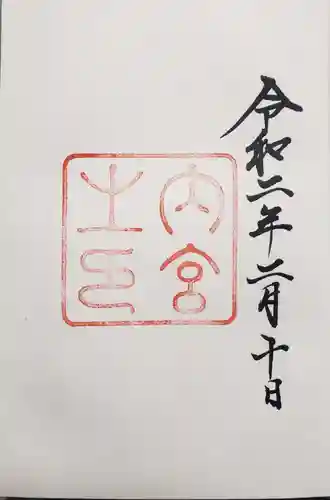 令和二年二月十日
内宮之印